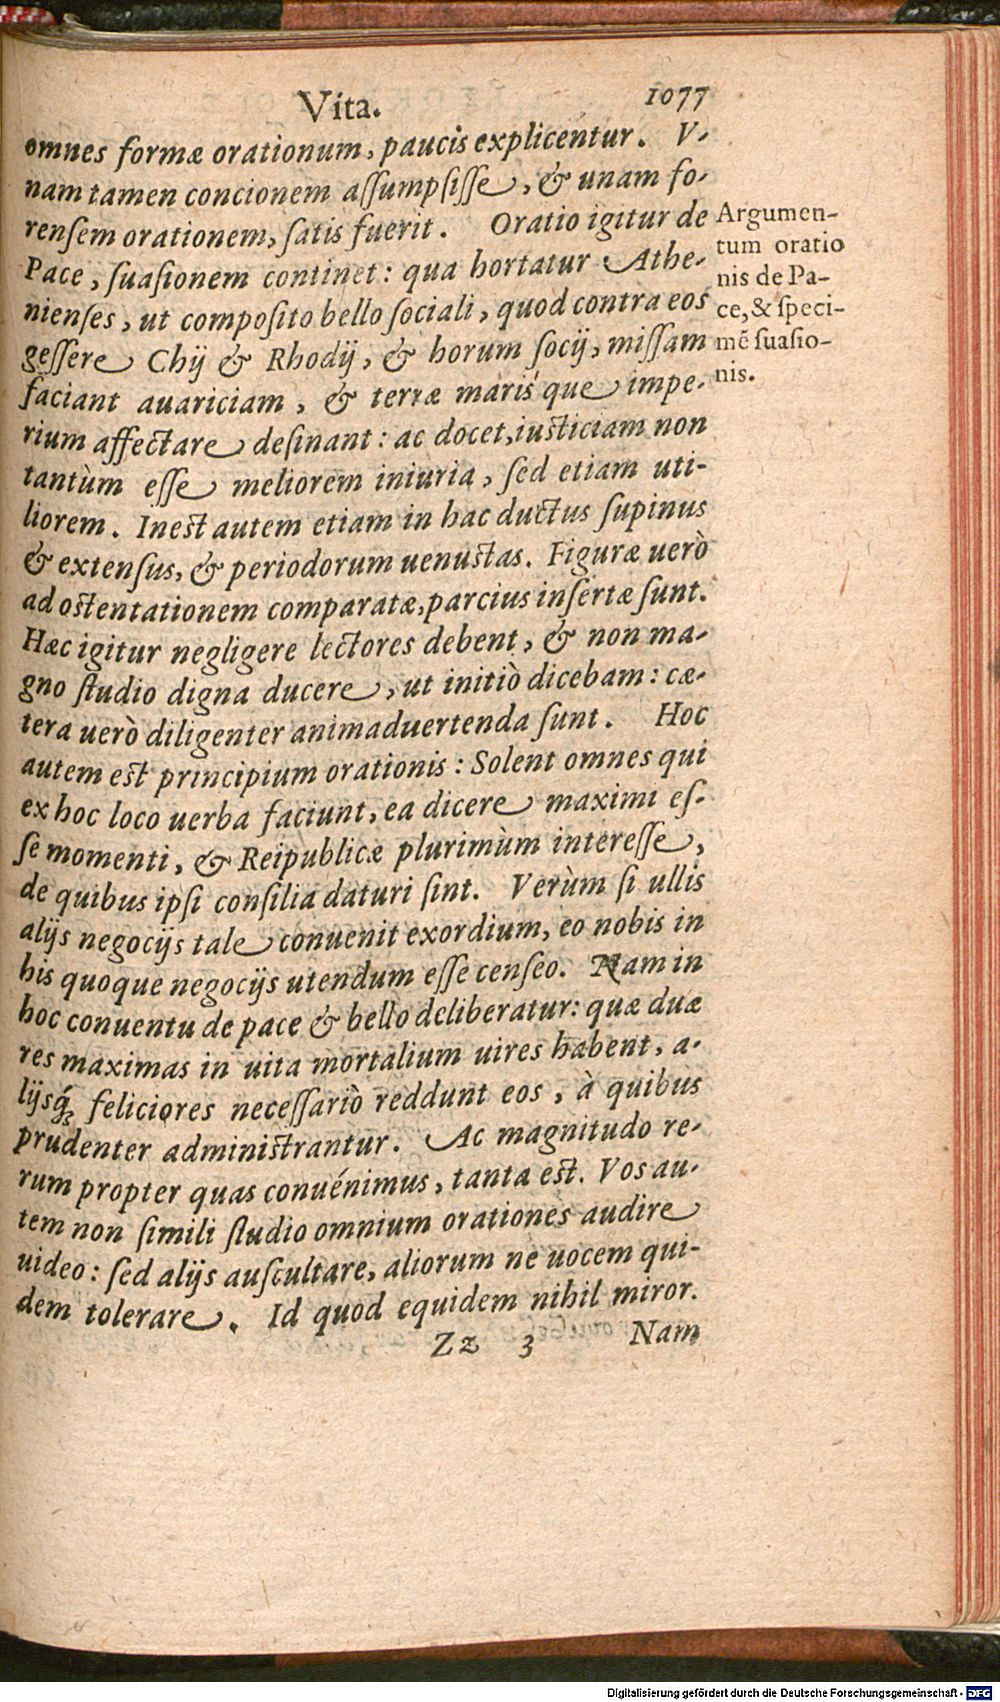 Vita. 1077
omnes formæ orationum, paucis explicentur. V-
nam tamen concionem aſſumpſiſſe, & unam fo-
renſem orationem, ſatis fuerit. Oratio igitur de
Pace, ſuaſionem continet: qua hortatur Athe-
nienſes, ut compoſito bello ſociali, quod contra eos
geſſere Chij & Rhodij, & horum ſocij, miſſam
faciant auariciam, & terræ maris'que impe-
rium affectare deſinant: ac docet, iuſticiam non
tantùm eſſe meliorem iniuria, ſed etiam uti-
liorem. Ineſt autem etiam in hac ductus ſupinus
& extenſus, & periodorum uenuſtas. Figuræ uerò
ad oſtentationem comparatæ, parcius inſertæ ſunt.
Hæc igitur negligere lectores debent, & non ma-
gno ſtudio digna ducere, ut initiò dicebam: cæ-
tera uerò diligenter animaduertenda ſunt. Hoc
autem eſt principium orationis: Solent omnes qui
ex hoc loco uerba faciunt, ea dicere maximi eſ-
ſe momenti, & Reipublicæ plurimùm intereſſe,
de quibus ipſi conſilia daturi ſint. Verùm ſi ullis
alijs negocijs tale conuenit exordium, eo nobis in
his quoque negocijs utendum eſſe cenſeo. Nam in
hoc conuentu de pace & bello deliberatur: quæ duæ
res maximas in uita mortalium uires habent, a-
lijsq́ꝫ feliciores neceſſariò reddunt eos, à quibus
prudenter adminiſtrantur. Ac magnitudo re-
rum propter quas conuénimus, tanta eſt. Vos au-
tem non ſimili ſtudio omnium orationes audire
uideo: ſed alijs auſcultare, aliorum ne uocem qui-
dem tolerare. Id quod equidem nihil miror.
Zz 3 Nam
Argumen-
tum oratio
nis de Pa-
ce, & ſpeci-
mē ſuaſio-
nis.
Digitalisierung gefördert durch die Deutsche Forschungsgemeinschaft - DFG